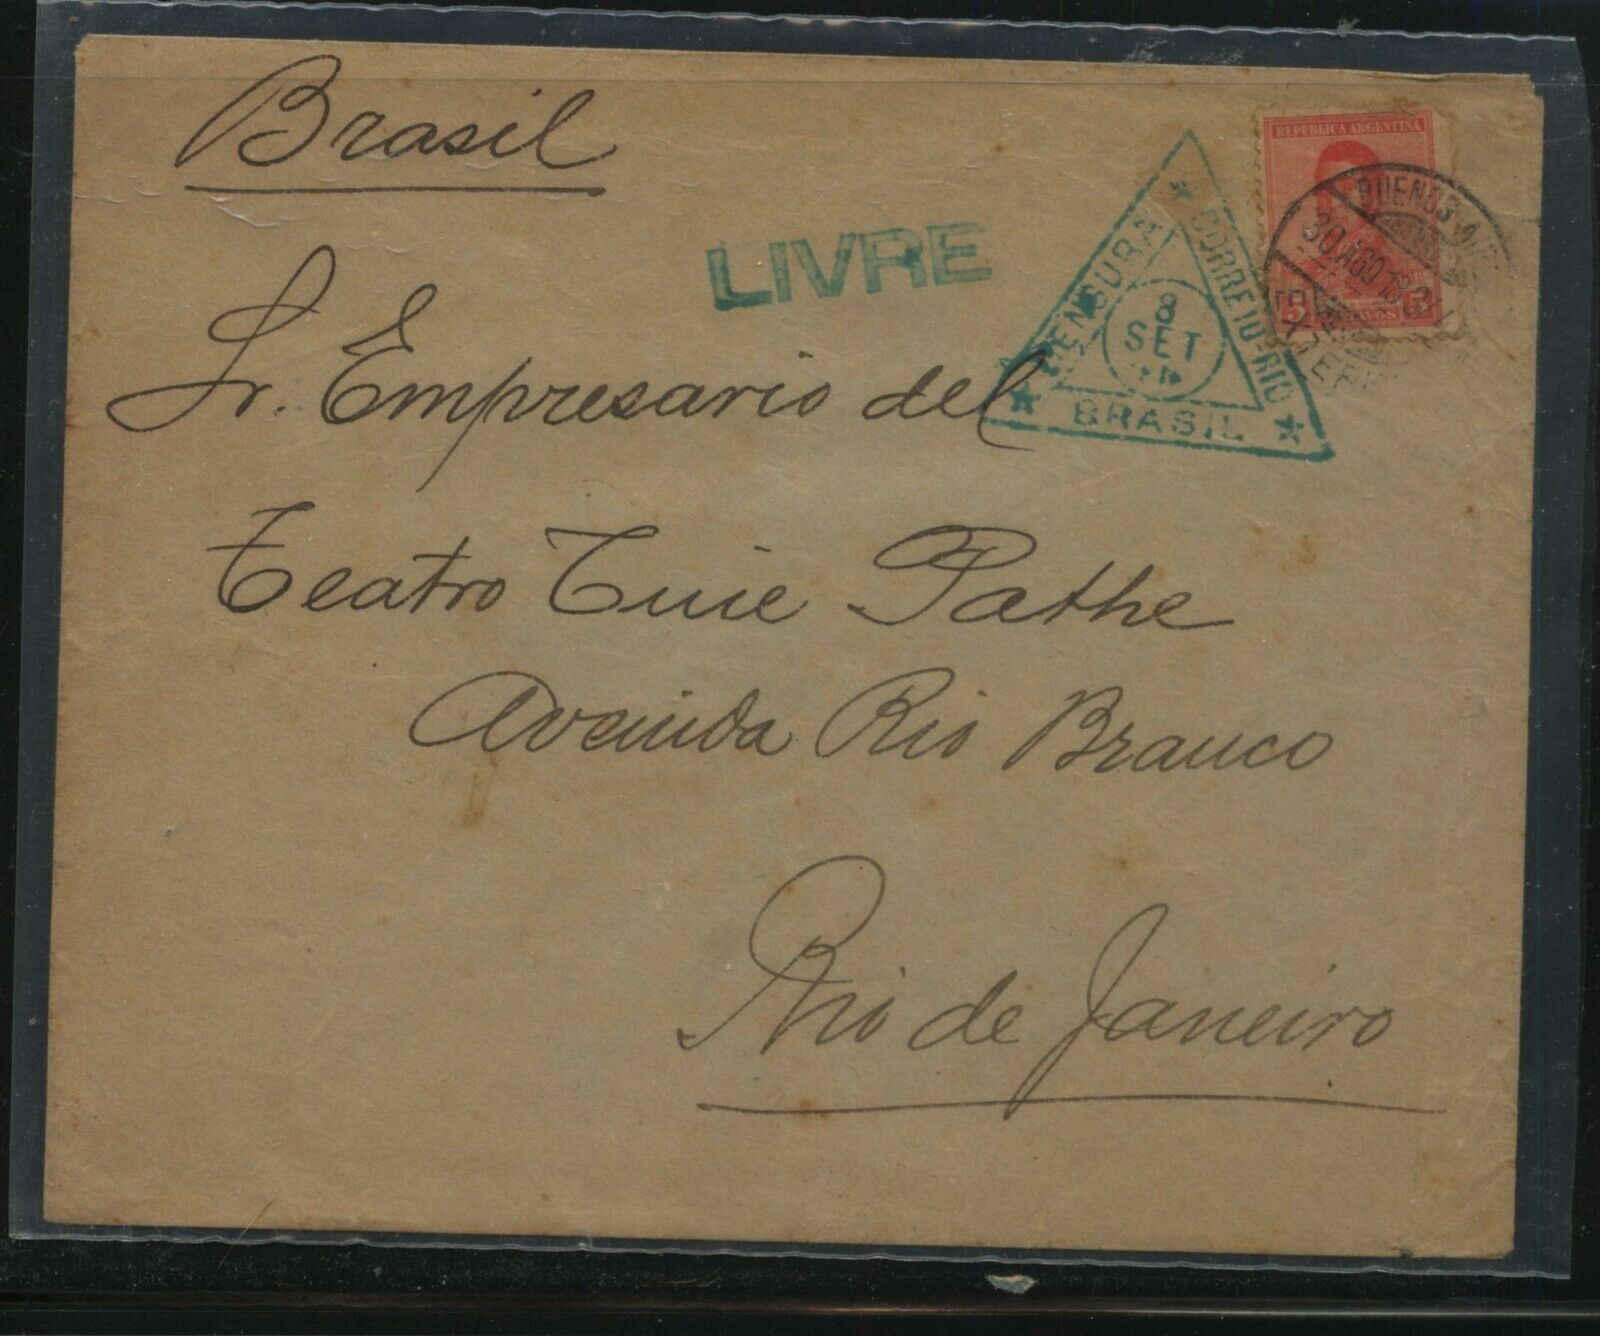 Brasil
LIVRE
CENSURA
CORREIO RIO
8
SET
BRASIL
REPUBLICA ARGENTINA
5 5
BUENOS AIRES
30 AGO 18
Sr. Empresario del
Teatro Cuie Pathe
Avenida Rio Branco
Rio de Janeiro